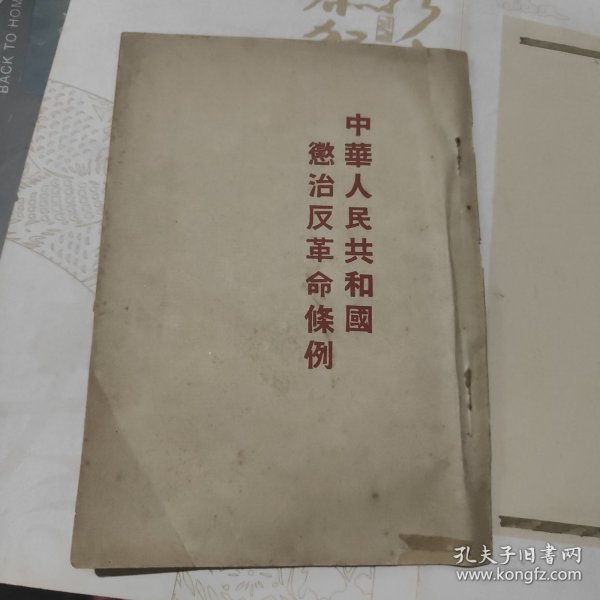 中華人民共和國
懲治反革命條例
BACK TO HOM
孔夫子旧書网
www.kongfz.com